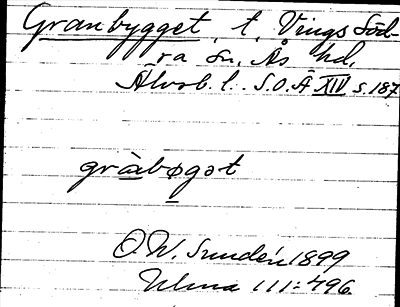 Granbygget, t. Vings Söd-
ra Sn, Ås hd,
Älvsb. l. S.O.Ä XIV s. 187
gràbøgət
O.W. Sundén 1899
Ulma 111:496